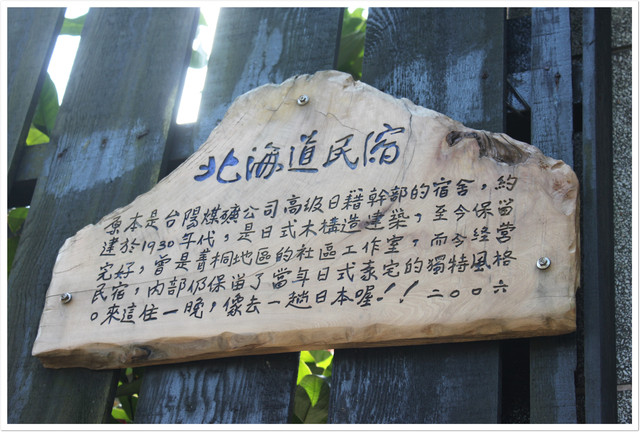 北海道民宿
原本是台陽煤礦公司高級日籍幹部的宿舍，約
建於1930年代，是日式木構造建築，至今保留
完好，曾是菁桐地區的社區工作室，而今經營
民宿，內部仍保留了當年日式家宅的獨特風格
。來這住一晚，像去一趟日本喔！！二〇〇六